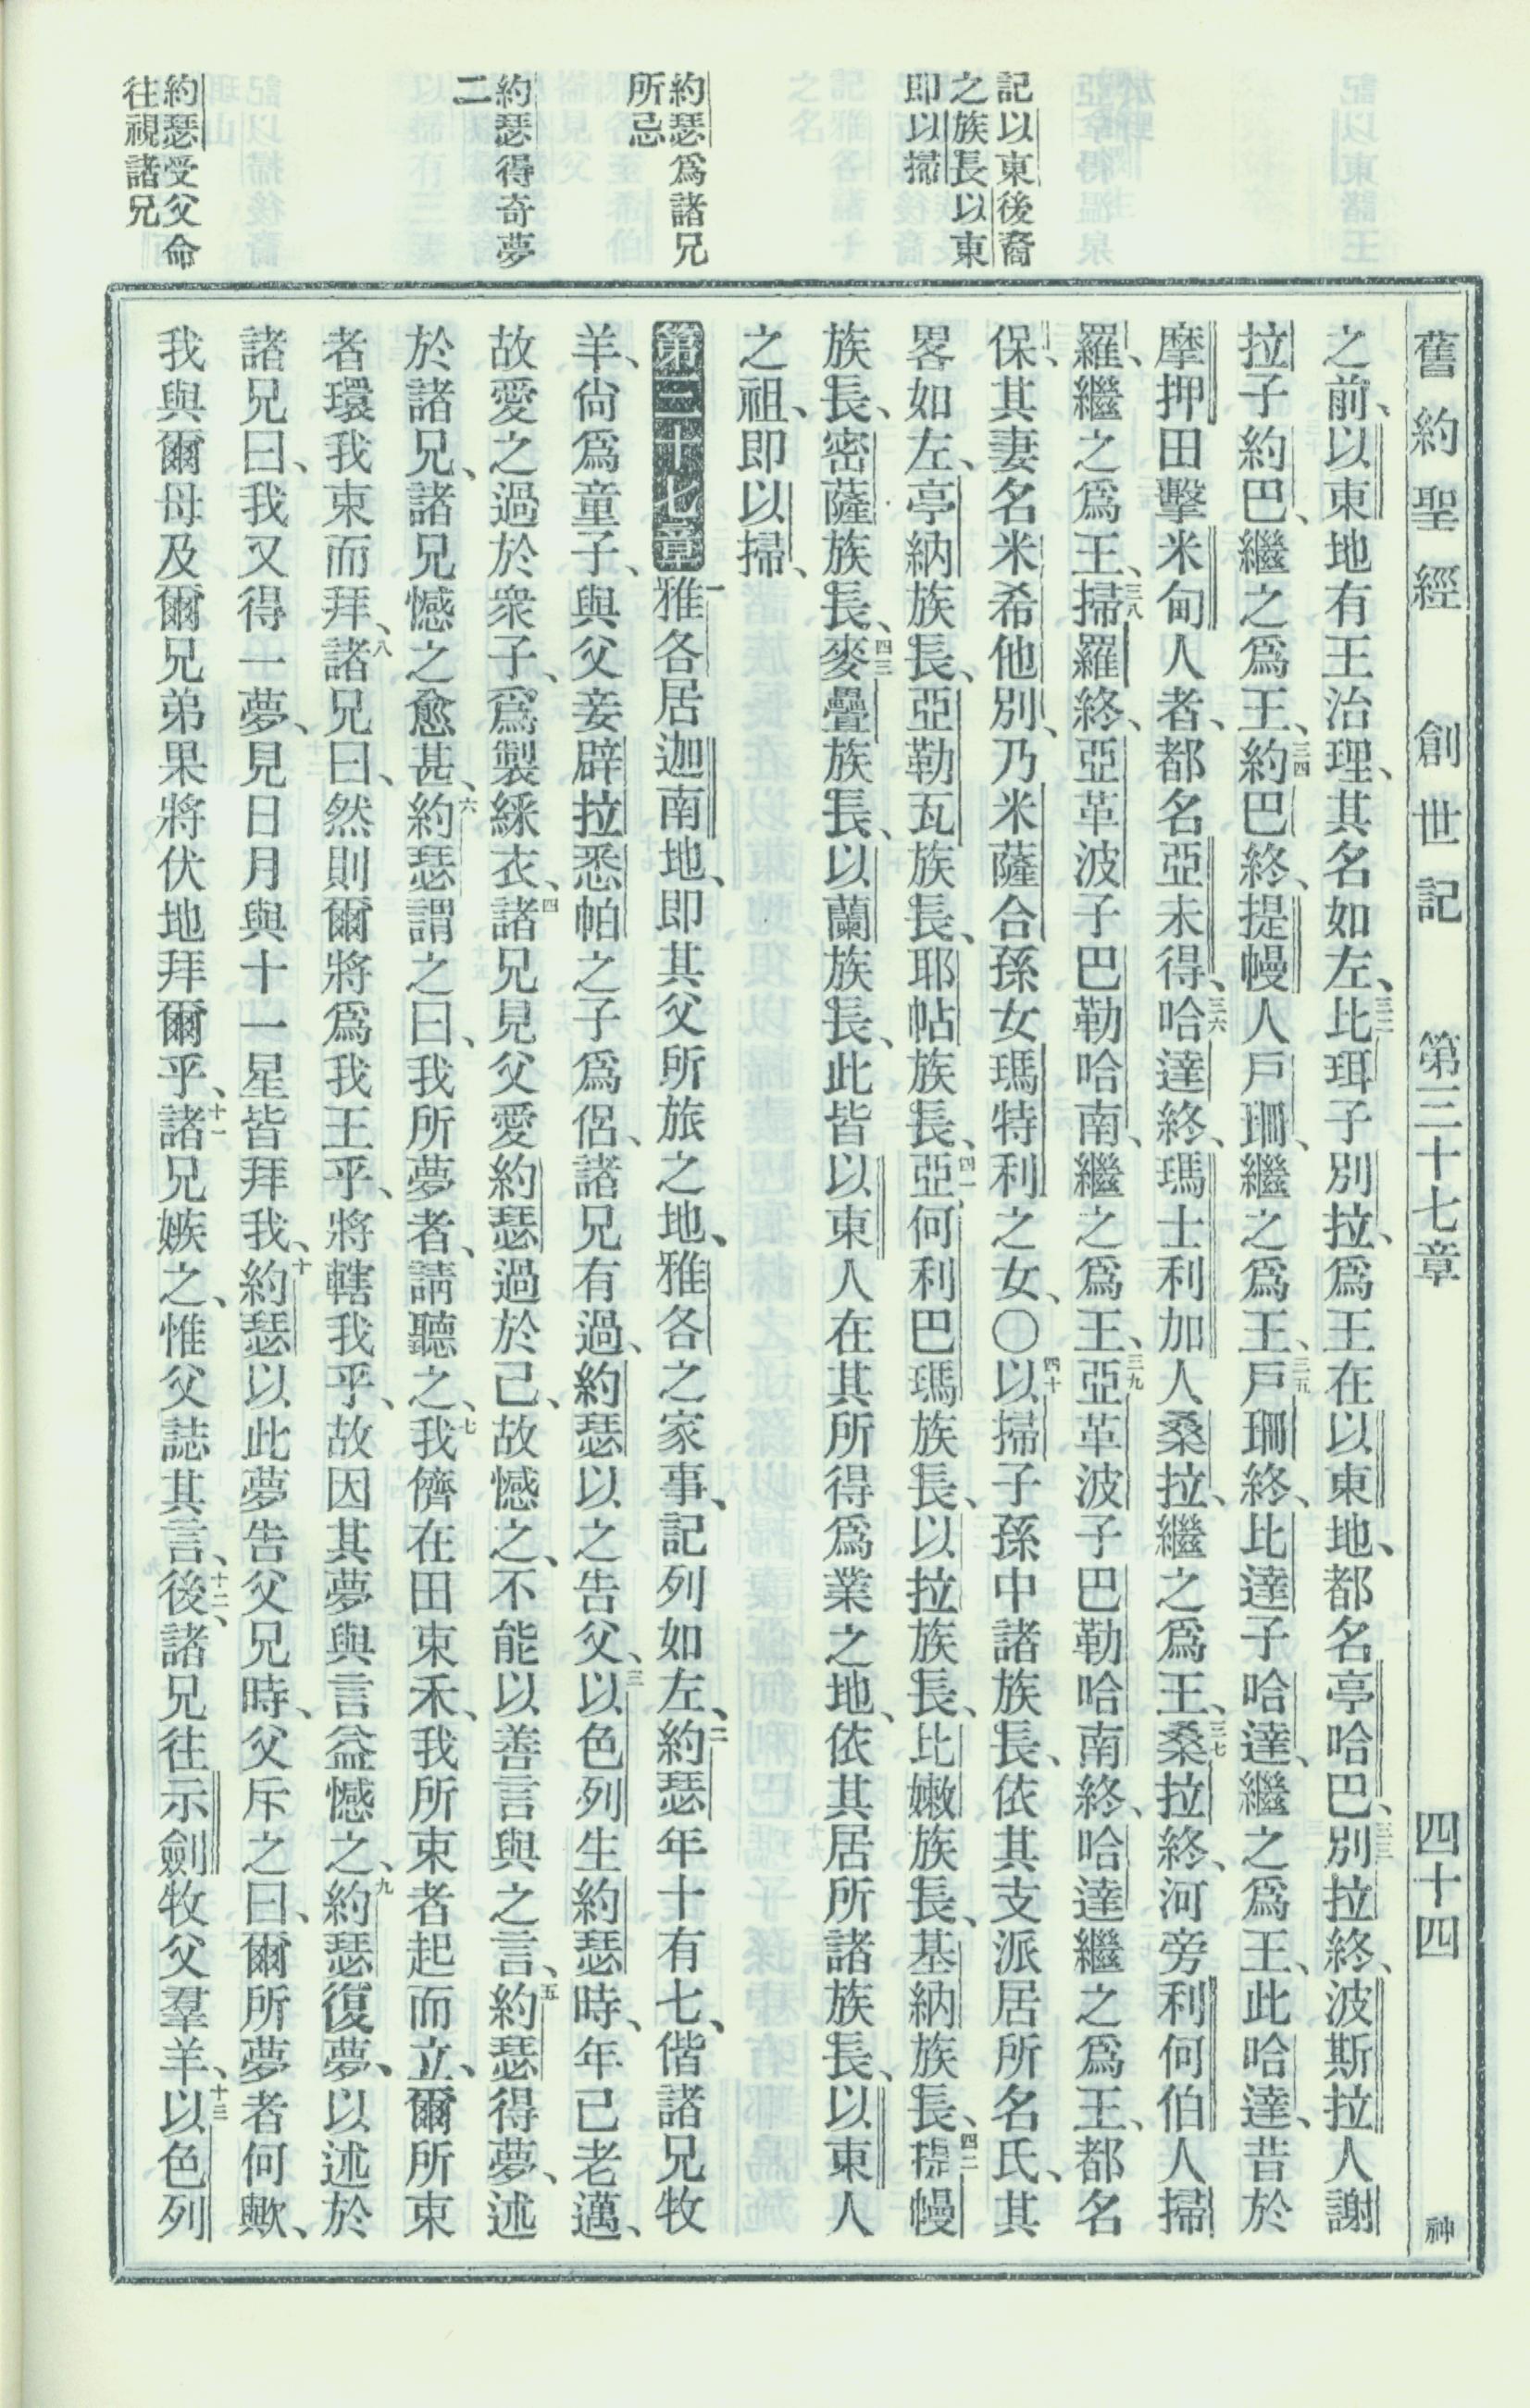 舊約聖經 創世記 第三十七章 四十四 神
之前、以東地有王治理、其名如左、三二比珥子別拉、爲王在以東地、都名亭哈巴、三三別拉終、波斯拉人謝
拉子約巴、繼之爲王、三四約巴終、提幔人戶珊、繼之爲王、三五戶珊終、比達子哈達、繼之爲王、此哈達、昔於
摩押田擊米甸人者、都名亞未得、三六哈達終、瑪士利加人桑拉、繼之爲王、三七桑拉終、河旁利何伯人掃
羅、繼之爲王、三八掃羅終、亞革波子巴勒哈南、繼之爲王、三九亞革波子巴勒哈南終、哈達繼之爲王、都名
保、其妻名米希他別、乃米薩合孫女瑪特利之女、〇四十以掃子孫中諸族長、依其支派居所名氏、其
畧如左、亭納族長、亞勒瓦族長、耶帖族長、四一亞何利巴瑪族長、以拉族長、比嫩族長、基納族長、四二提幔
族長、密薩族長、四三麥疊族長、以蘭族長、此皆以東人在其所得爲業之地、依其居所諸族長、以東人
之祖、即以掃、
第三十七章 一雅各居迦南地、即其父所旅之地、雅各之家事、記列如左、二約瑟年十有七、偕諸兄牧
羊、尙爲童子、與父妾辟拉悉帕之子爲侶、諸兄有過、約瑟以之告父、三以色列生約瑟時、年已老邁、
故愛之過於衆子、爲製綵衣、四諸兄見父愛約瑟過於己、故憾之、不能以善言與之言、五約瑟得夢、述
於諸兄、諸兄憾之愈甚、六約瑟謂之曰、我所夢者、請聽之、七我儕在田束禾、我所束者起而立、爾所束
者環我束而拜、八諸兄曰、然則爾將爲我王乎、將轄我乎、故因其夢與言益憾之、九約瑟復夢、以述於
諸兄曰、我又得一夢、見日月與十一星皆拜我、十約瑟以此夢告父兄時、父斥之曰、爾所夢者何歟、
我與爾母及爾兄弟果將伏地拜爾乎、十一諸兄嫉之、惟父誌其言、十二、後諸兄往示劍牧父羣羊、十三以色列
記以東後裔
之族長以東
即以掃
約瑟爲諸兄
所忌
約瑟得奇夢
二
約瑟受父命
往視諸兄